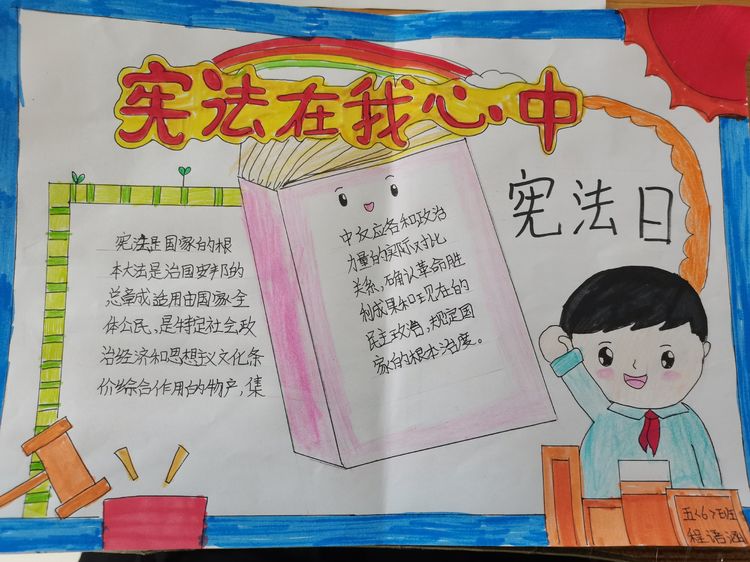 宪法在我心中
宪法日
宪法是国家的根
本大法是治国安邦的
总章成适用由国家全
体公民,是特定社会政
治经济和思想议文化条
价综合作用的物产,集
中反应各和政治
力量的实际对比
关系,确认革命胜
利成果和现在的
民主政治,规定国
家的根本治度。
五<6>班
程语涵